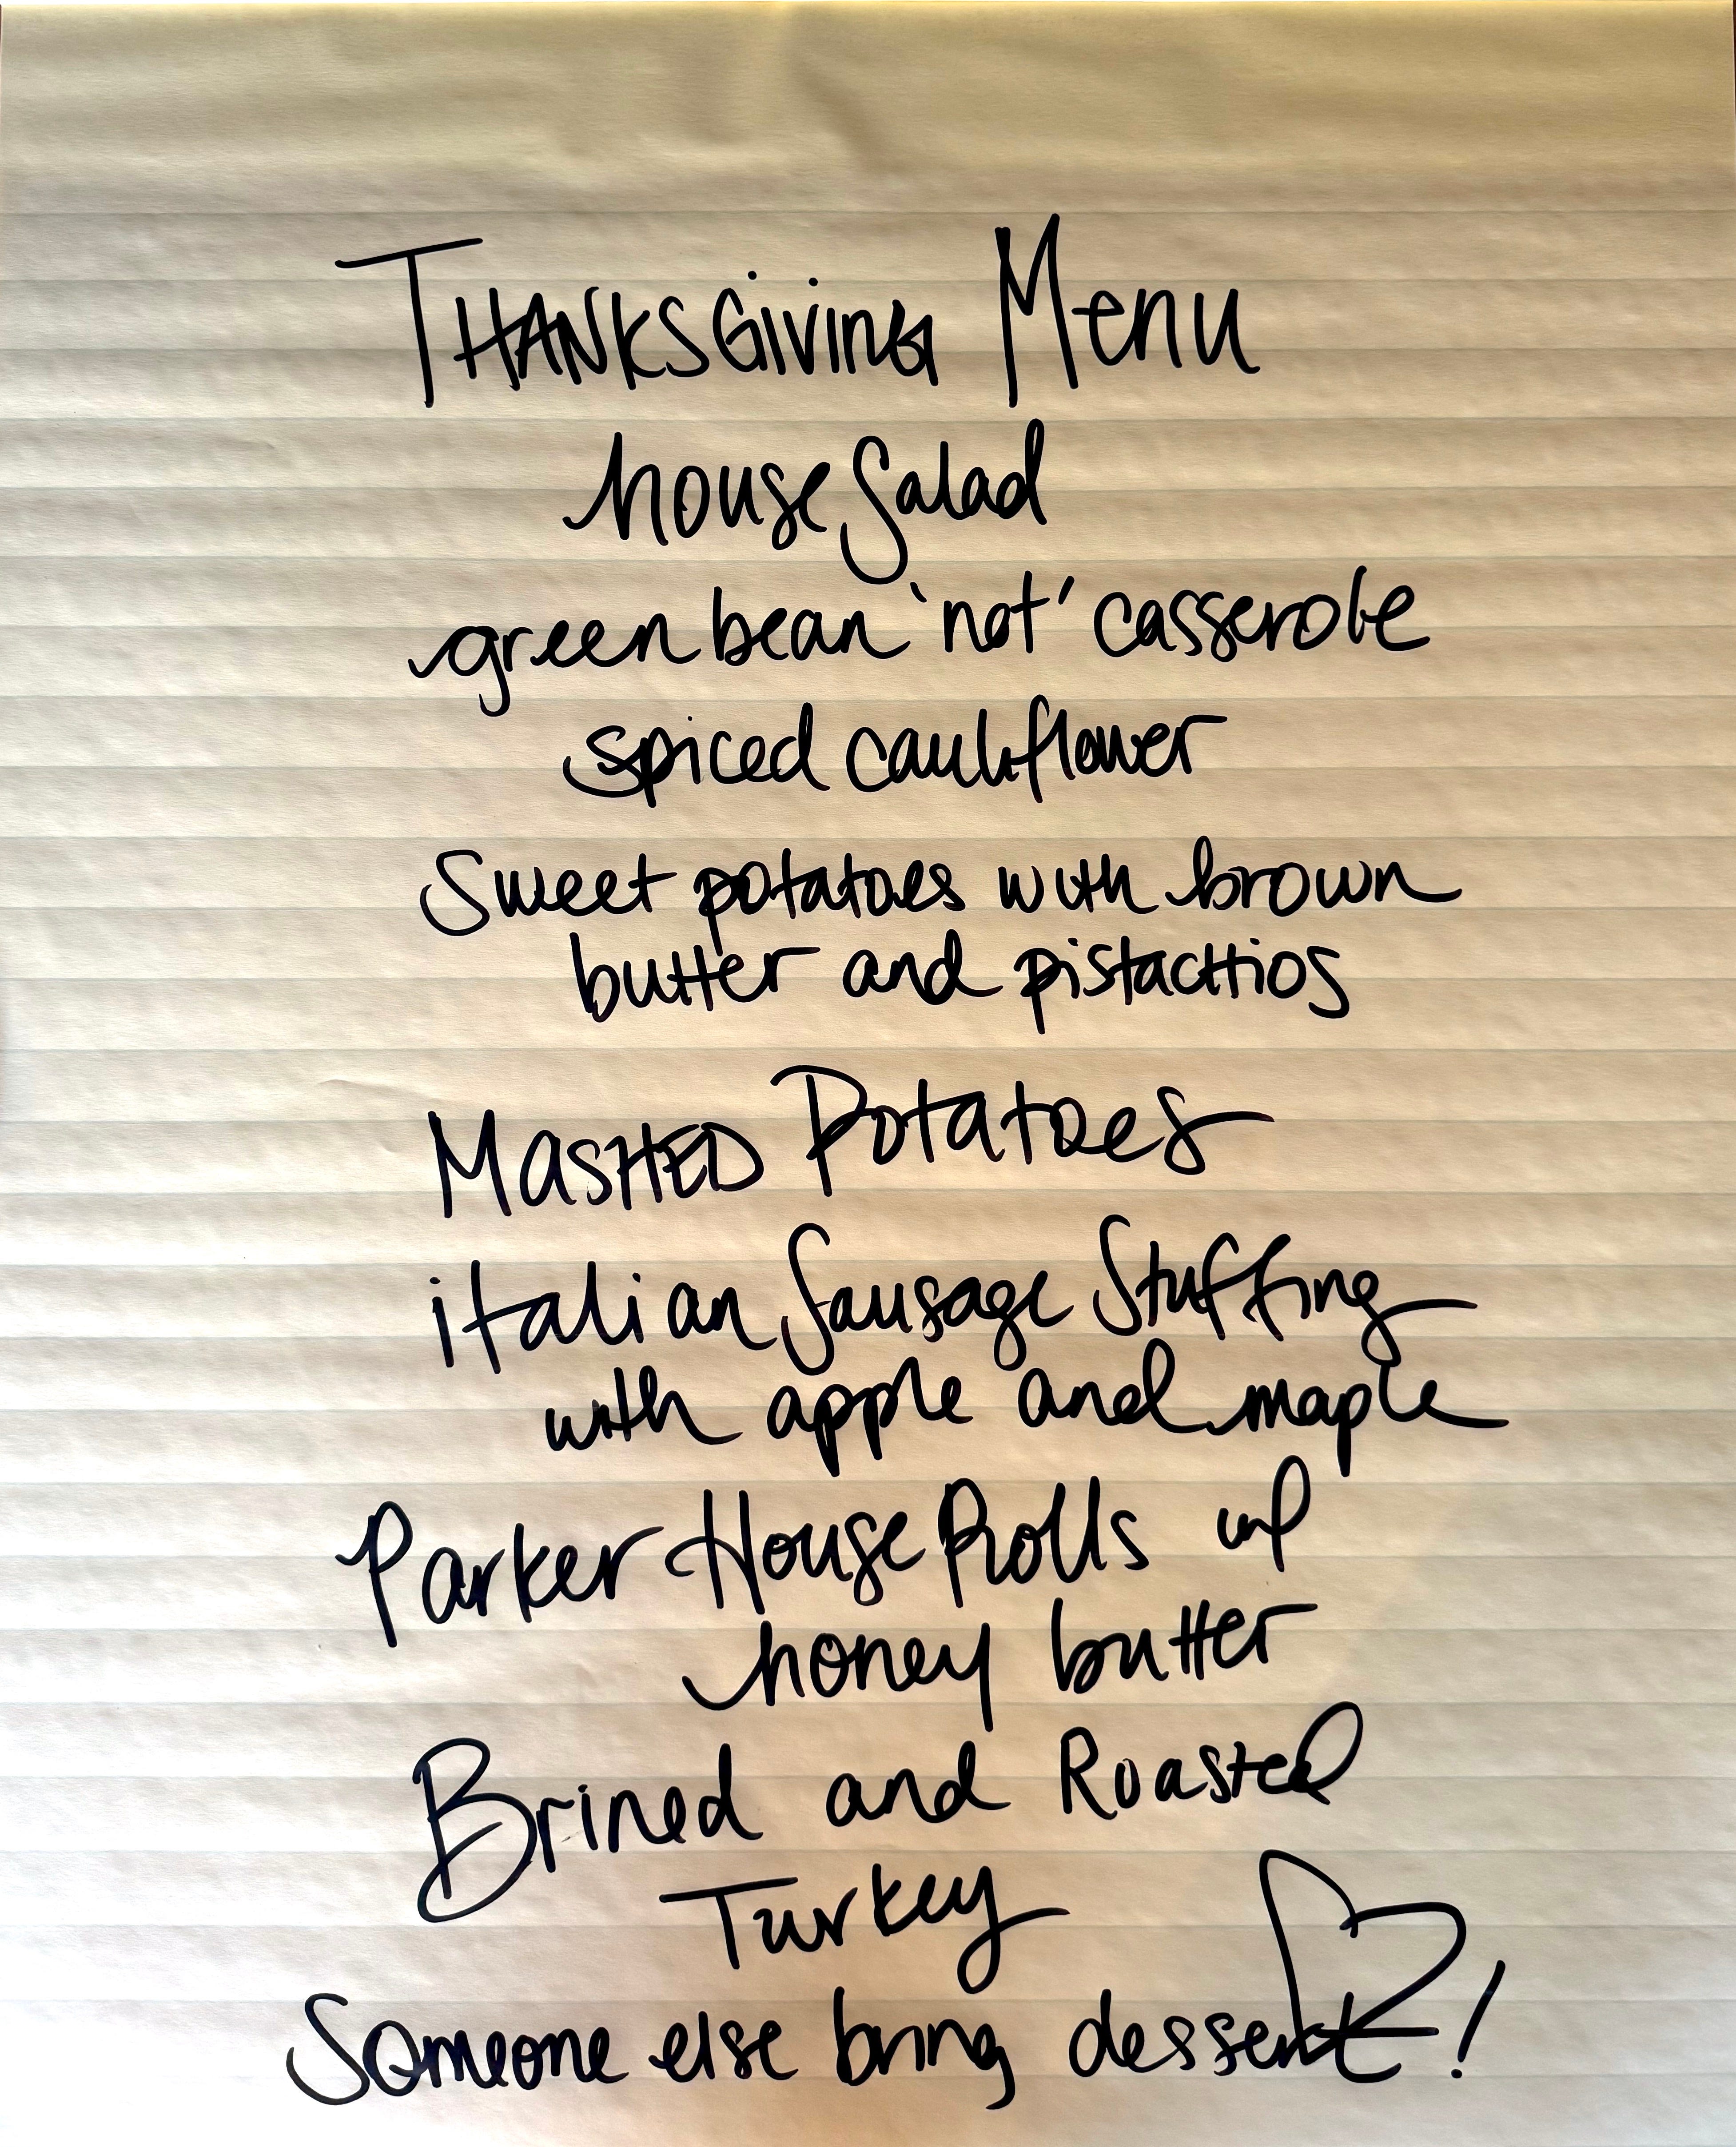 THANKSGiVinG Menu
house Salad
green bean 'not' casserole
spiced cauliflower
Sweet potatoes with brown
butter and pistachios
MasHED Potatoes
italian Sausage Stuffing
with apple and maple
Parker House Rolls w/
honey butter
Brined and Roasted
Turkey
Someone else bring dessert!